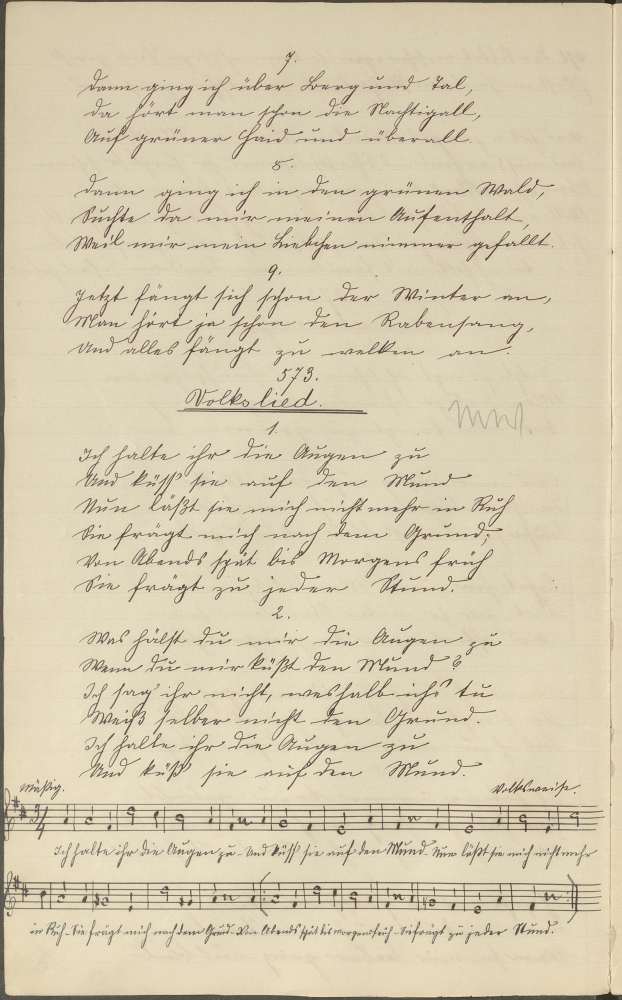 7.
Dann ging ich über Berg und Tal,
Da hört man schon die Nachtigall,
Auf grüner Haid und überall.
8.
Dann ging ich in den grünen Wald,
Suchte da mir meinen Aufenthalt,
Weil mir mein Liebchen nimmer gefällt.
9.
Jetzt fängt sich schon der Winter an,
Man hört ja schon den Rabensang,
Und alles fängt zu welken an.
573.
Volkslied.
MW.
1.
Ich halte ihr die Augen zu
Und küss' sie auf den Mund
Nun läßt sie mich nicht mehr in Ruh
Sie frägt mich nach dem Grund;
Von Abends spät bis Morgens früh
Sie frägt zu jeder Stund.
2.
Was hälst du mir die Augen zu
Wenn du mir küßt den Mund?
Ich sag' ihr nicht, weshalb ichs tu
Weiß selber nicht den Grund.
Ich halte ihr die Augen zu
Und küß' sie auf den Mund.
Mäßig. Volksweise.
3/4
Ich halte ihr die Augen zu - Und küss' sie auf den Mund - Nun läßt sie mich nicht mehr
in Ruh - Sie frägt mich nach dem Grund - Von Abends spät bis morgens früh - Sie frägt zu jeder Stund.